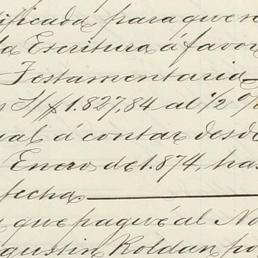 tificada para que n
la Escritura á favor
Testamentaria
S/ $1.827,84 al ½ %
ual á contar desde
Enero de 1.874, has
fecha
que pagué al No
gustin Roldan po